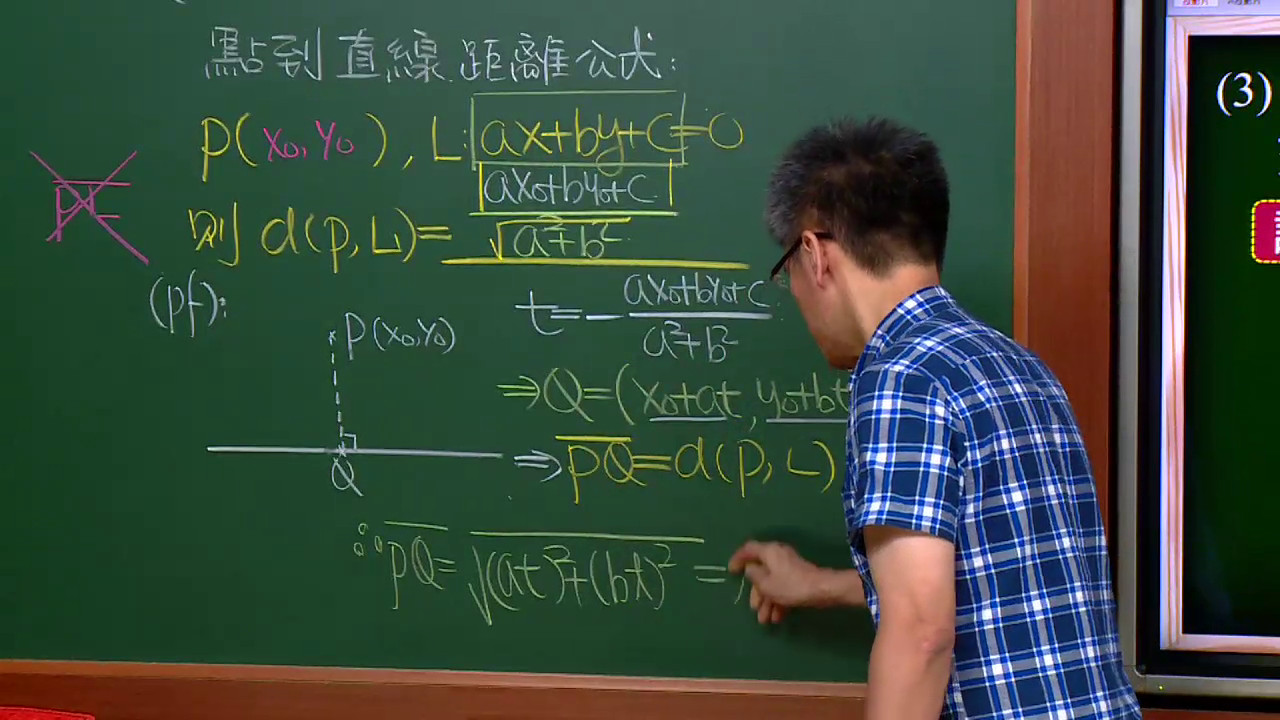 點到直線距離公式:
P(x₀,y₀), L: ax+by+c=0
則 d(P,L)= |ax₀+by₀+c| / √(a²+b²)
(pf):
t=-(ax₀+by₀+c)/(a²+b²)
P(x₀,y₀)
⇒Q=(x₀+at, y₀+bt
⇒PQ=d(P,L)
Q
∴PQ=√((at)²+(bt)²) =
(3)